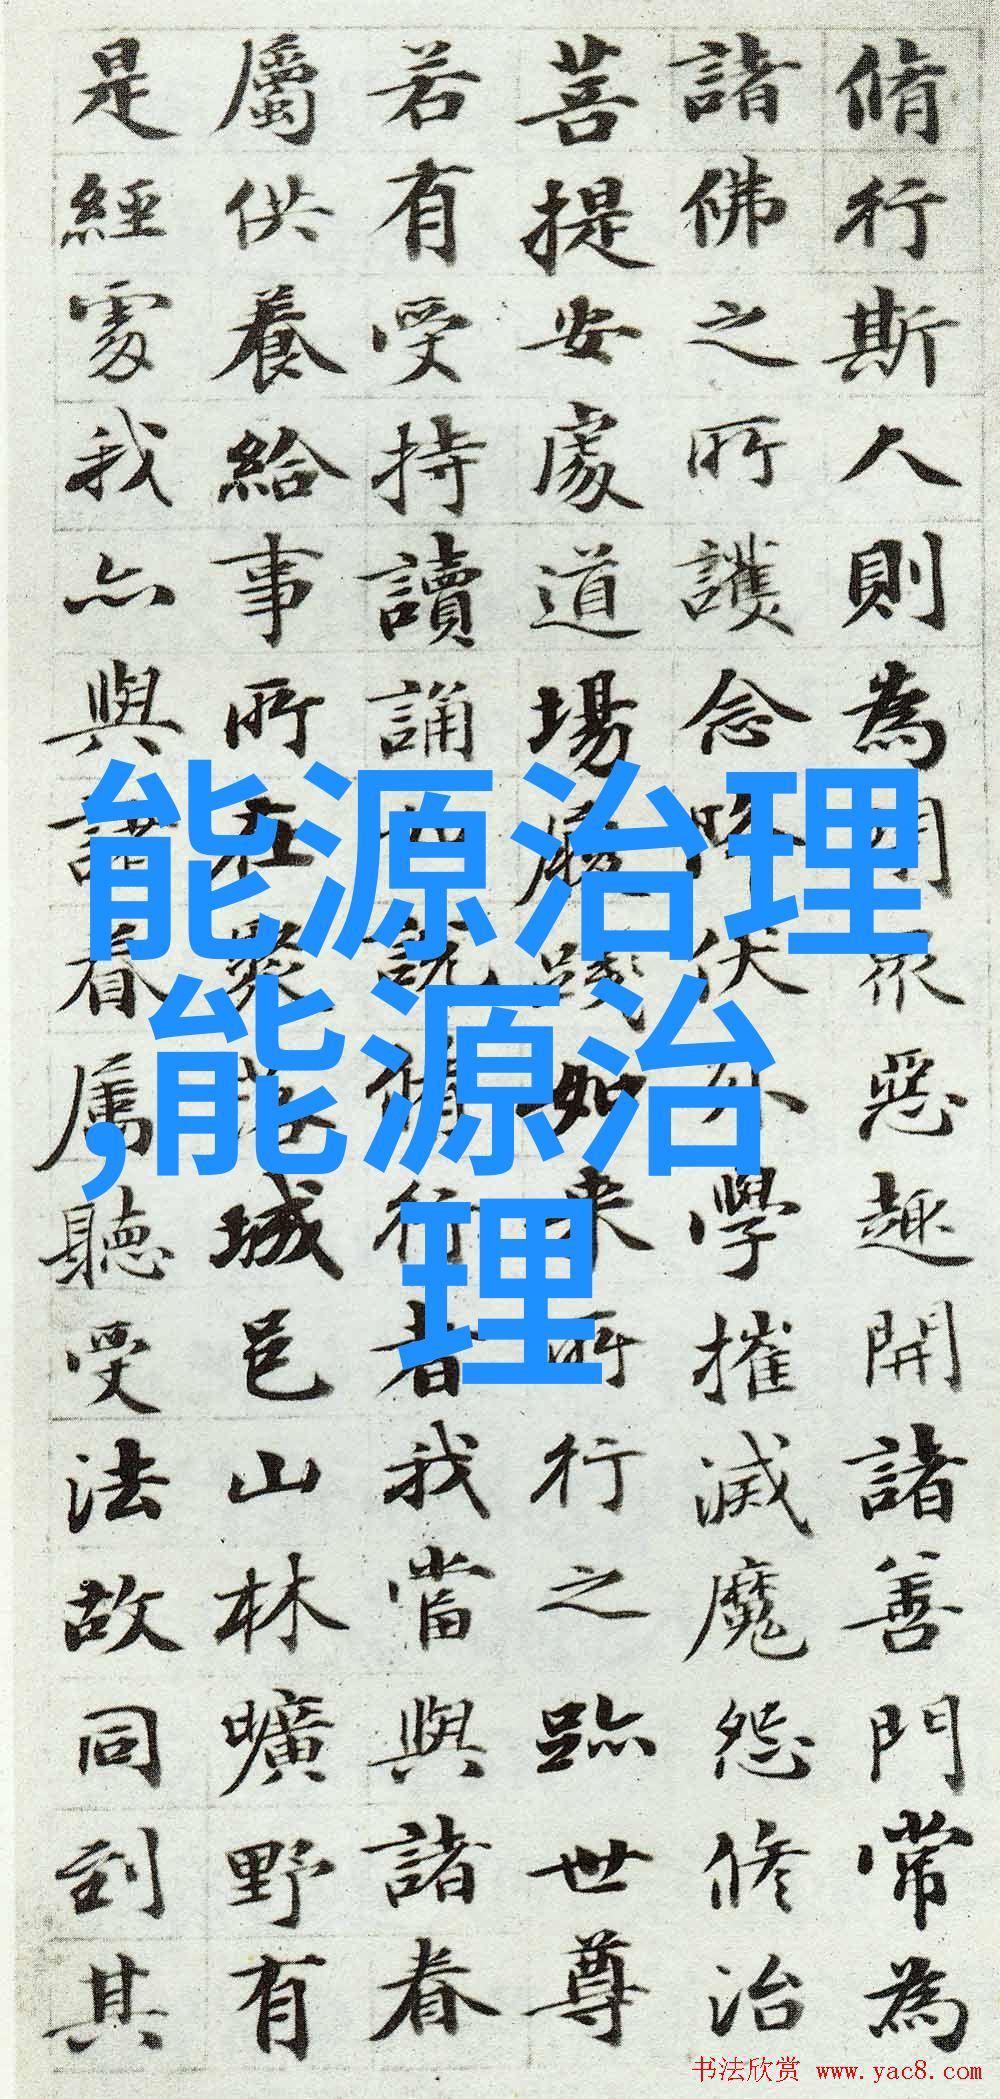 脩行斯人則為閇眾惡趣開諸善門常為
諸佛之所護念降伏外學摧滅魔怨修治
菩提安處道場履踐如来所行之跡世尊
若有受持讀誦說脩行者我當與諸眷
屬供養給事所在聚落城邑山林曠野有
是經處我亦與諸眷属聽受法故同到其
能源治理
,能源治
理
书法欣赏 www.yac8.com